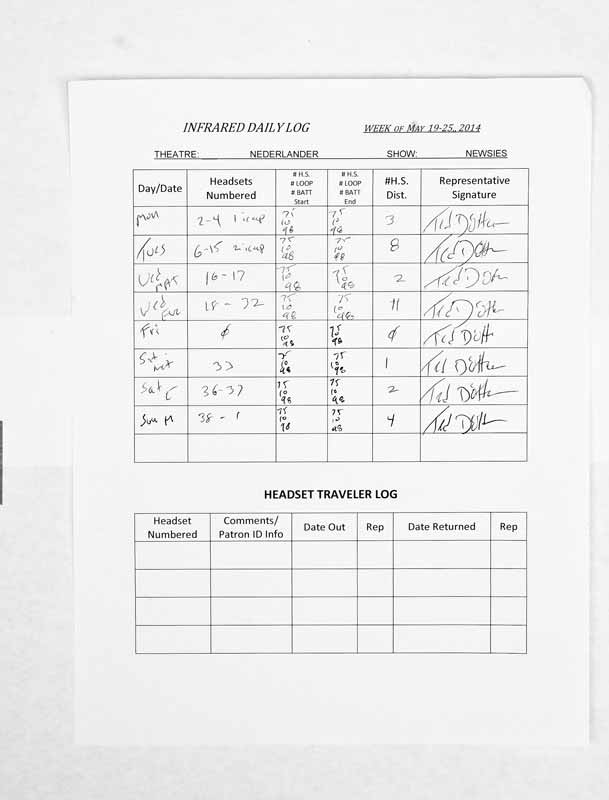 INFRARED DAILY LOG WEEK OF MAY 19-25, 2014
THEATRE: NEDERLANDER SHOW: NEWSIES
Day/Date Headsets Numbered # H.S. # LOOP # BATT Start # H.S. # LOOP # BATT End #H.S. Dist. Representative Signature
Mon 2-4 75 10 98 75 10 98 3 Ted
Tues 6-15 75 10 98 75 10 98 8 Ted
Wed MAT 16-17 75 10 98 75 10 98 2 Ted
Wed Eve 18-32 75 10 98 75 10 98 11 Ted
Fri ø 75 10 98 75 10 98 ø Ted
Sat mt 33 75 10 98 75 10 98 1 Ted
Sat E 36-37 75 10 98 75 10 98 2 Ted
Sun M 38-1 75 10 98 75 10 98 4 Ted
HEADSET TRAVELER LOG
Headset Numbered Comments/ Patron ID Info Date Out Rep Date Returned Rep